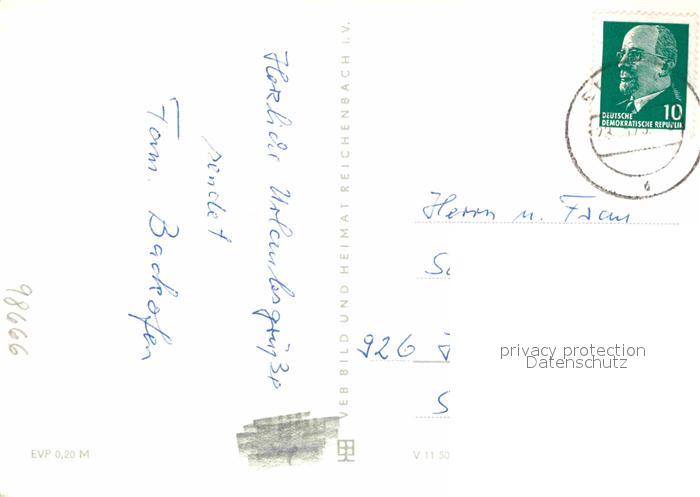 Herzliche Urlaubsgrüße
sendet
Fam. Backofen
98666
EVP 0,20 M
VEB BILD UND HEIMAT REICHENBACH I.V.
V 11 50
10
DEUTSCHE
DEMOKRATISCHE REPUBLIK
Herrn u. Frau
926
privacy protection
Datenschutz